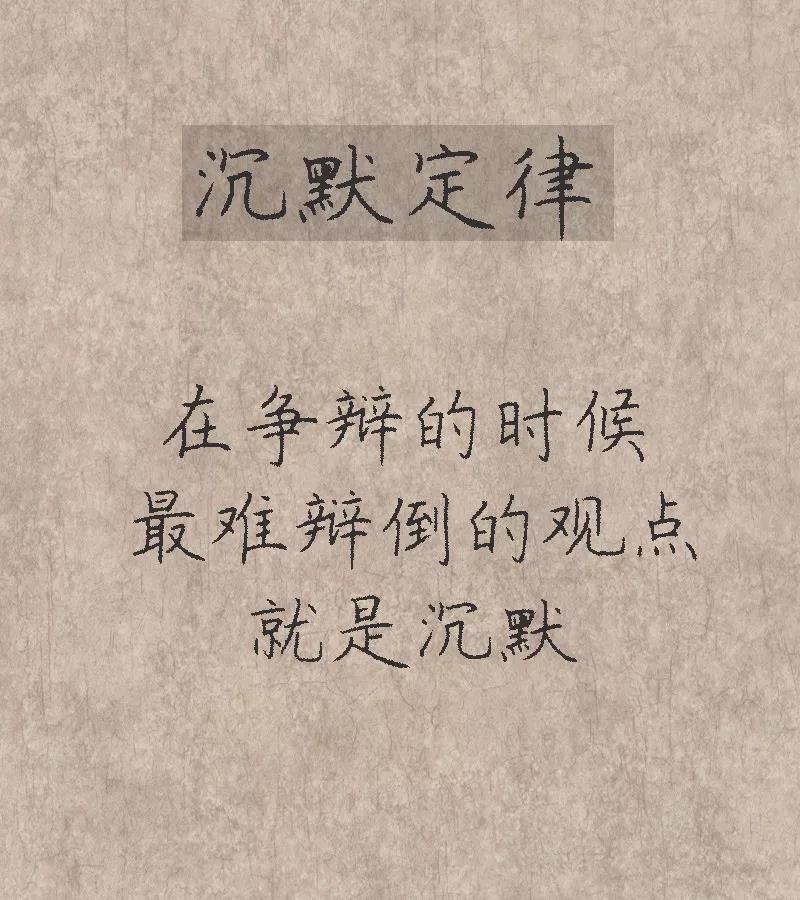 沉默定律
在争辩的时候
最难辩倒的观点
就是沉默